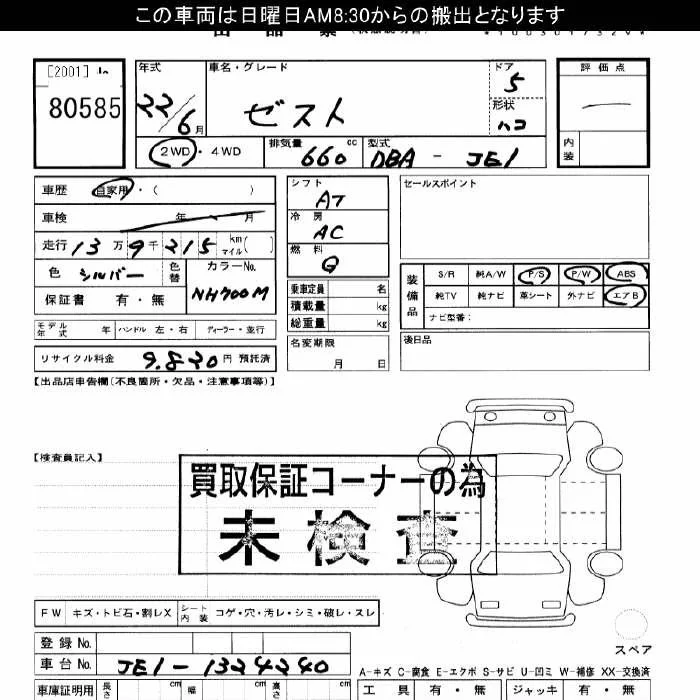 この車両は日曜日AM8:30からの搬出となります
[2001]
80585
年式
22/6月
車名・グレード
ゼスト
ドア
5
形状
ハコ
評価点
内装
2WD・4WD
排気量 660 cc
型式 DBA - JE1
車歴 自家用・( )
車検 年 月
走行 13万9千215 km マイル( )
色 シルバー 色替
カラーNo. NH700M
保証書 有・無
モデル年式 年 ハンドル 左・右 ディーラー・並行
リサイクル料金 9,820円 預託済
シフト
AT
冷房
AC
燃料
G
乗車定員 名
積載量 kg
総重量 kg
名変期限
月 日
セールスポイント
装備品
S/R 純A/W P/S P/W ABS
純TV 純ナビ 革シート 外ナビ エアB
ナビ型番:
後日品
【出品店申告欄(不良箇所・欠品・注意事項等)】
【検査員記入】
買取保証コーナーの為
未検査
FW キズ・トビ石・割レX シート内装 コゲ・穴・汚レ・シミ・破レ・スレ
登録No.
車台No. JE1-1324240
スペア
A-キズ C-腐食 E-エクボ S-サビ U-凹ミ W-補修 XX-交換済
車庫証明用 長さ cm 幅 cm 高さ cm
工具 有・無 ジャッキ 有・無